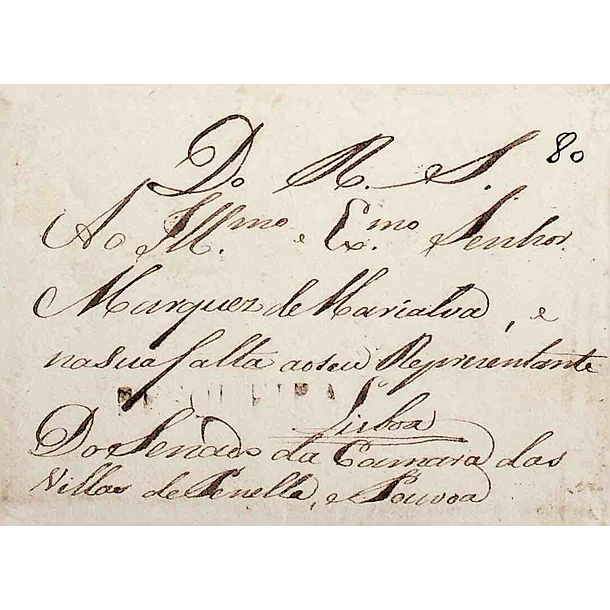 Do R. S. 80
Ao Ill.mo e Ex.mo Senhor
Marquez de Marialva, e
na sua falta ao seu Representante
Lisboa
Do Senado da Camara das
Villas de Penella, e Pouvoa